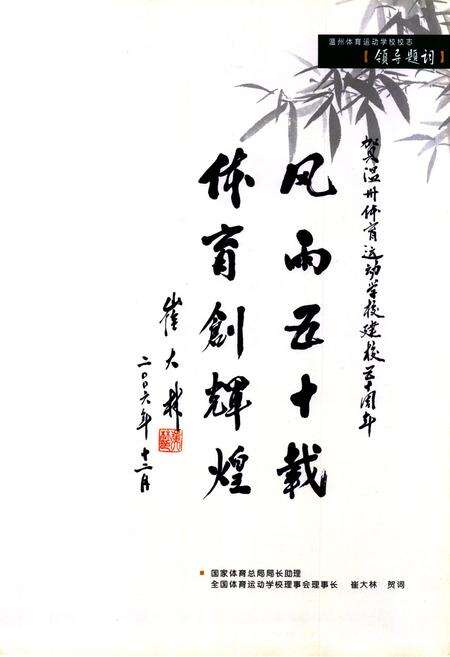 温州体育运动学校校志
【领导题词】
贺温州体育运动学校建校五十周年
风雨五十载
体育創輝煌
崔大林
二〇〇六年十二月
国家体育总局局长助理
全国体育运动学校理事会理事长 崔大林 贺词